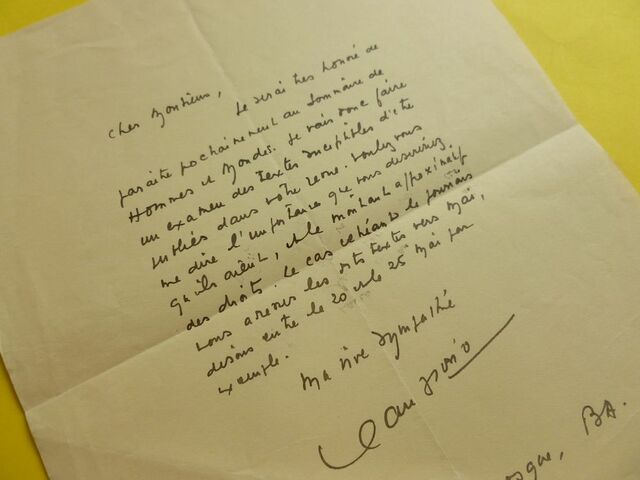 Cher Monsieur,
Je serai très honoré de
paraître pochainement au sommaire de
Hommes et Mondes. Je vais donc faire
un examen des textes susceptibles d'être
publiés dans votre revue. Voulez vous
me dire l'importance que vous desireriez
qu'ils aient, et le montant approximatif
des droits. Le cas échéant je pourrais
vous adresser les textes vers mai,
disons entre le 20 et le 25 mai par
exemple.
Ma vive sympathie
BA.